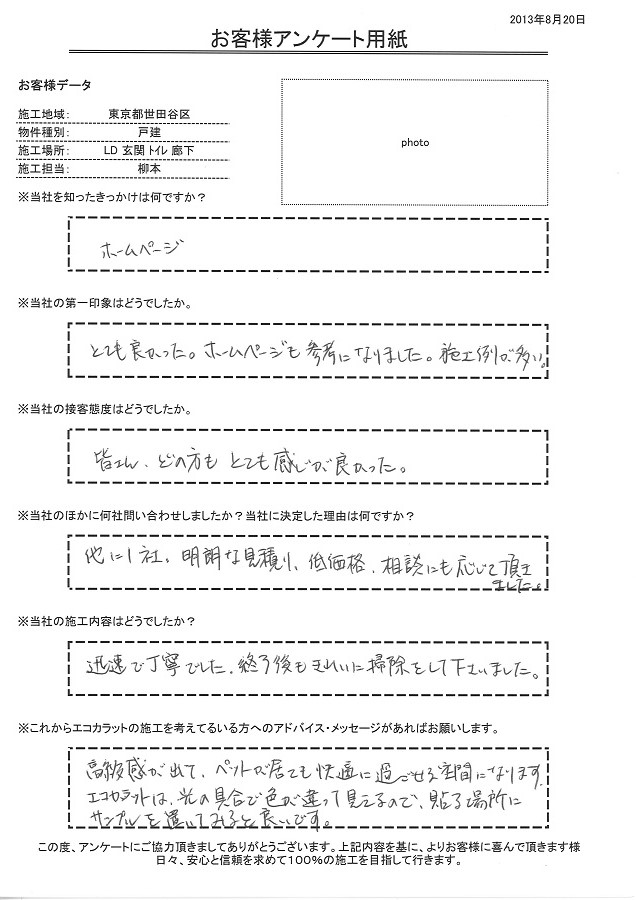 2013年8月20日
お客様アンケート用紙
お客様データ
施工地域： 東京都世田谷区
物件種別： 戸建
施工場所： LD 玄関 トイレ 廊下
施工担当： 柳本
photo
※当社を知ったきっかけは何ですか？
ホームページ
※当社の第一印象はどうでしたか。
とても良かった。ホームページも参考になりました。施工例が多い。
※当社の接客態度はどうでしたか。
皆さん、どの方もとても感じが良かった。
※当社のほかに何社問い合わせしましたか？当社に決定した理由は何ですか？
他に1社。明朗な見積り、低価格、相談にも応じて頂き
ました。
※当社の施工内容はどうでしたか？
迅速で丁寧でした。終了後もきれいに掃除をして下さいました。
※これからエコカラットの施工を考えてるいる方へのアドバイス・メッセージがあればお願いします。
高級感が出て、ペットが居ても快適に過ごせる空間になります。
エコカラットは、光の具合で色が違って見えるので、貼る場所に
サンプルを置いてみると良いです。
この度、アンケートにご協力頂きましてありがとうございます。上記内容を基に、よりお客様に喜んで頂きます様
日々、安心と信頼を求めて100％の施工を目指して行きます。